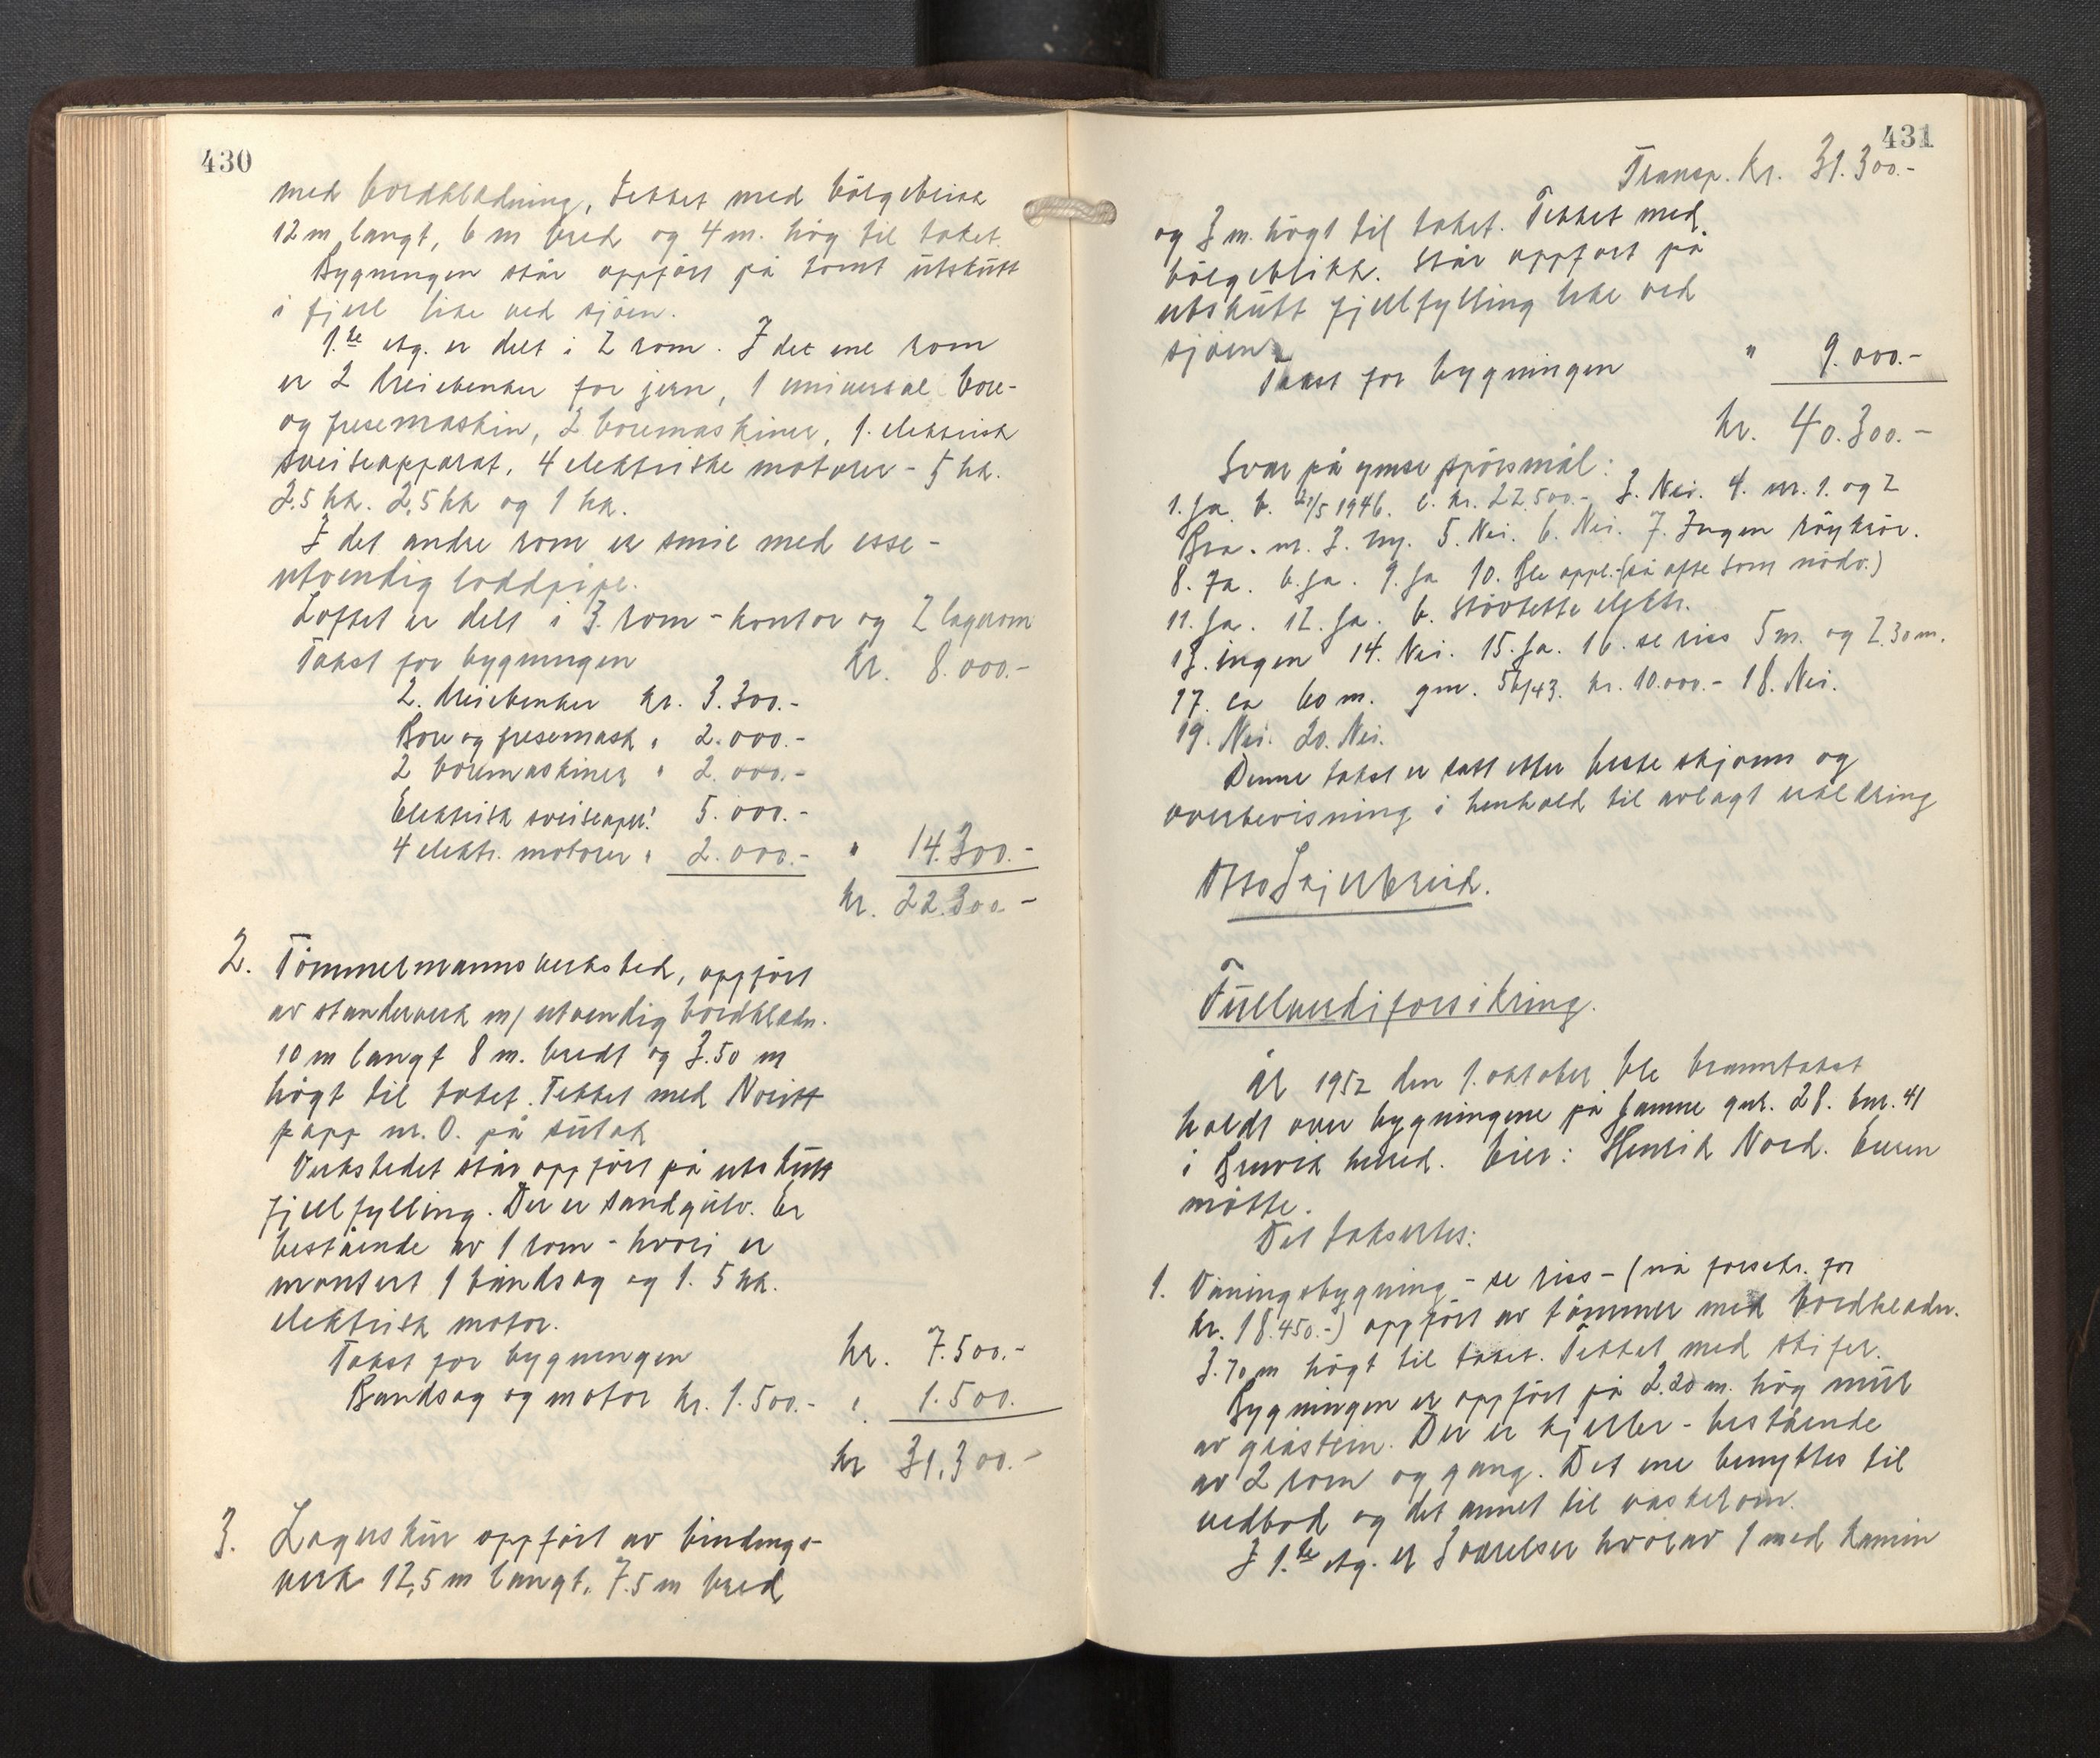 430
med bordklædning, tekket med bölgeblikk
12 m langt, 6 m bred og 4 m. hög til taket.
Bygningen står oppfört på tomt ütskütt
i fjell like ved sjöen.
1.ste etg. er delt i 2 rom. I det ene rom
er 2 dreiebenker for jern, 1 universal bore-
og fresemaskin, 2 boremaskiner, 1. elektrisk
sveiseapparat, 4 elektriske motorer - 5 hk.
2.5 hk. 2,5 hk og 1 hk.
I det andre rom er smie med esse-
utvendig loddpipe.
Loftet er delt i 3. rom - kontor og 2 lagerrom
Takst for bygningen kr. 8.000.-
2. dreiebenker kr. 3.300.-
Bore og fresemask " 2.000.-
2 boremaskiner " 2.000.-
Elektrisk sveiseapp. " 5.000.-
4 elektr. motorer " 2.000.- " 14.300.-
kr. 22.300.-
2. Tömmermannsverksted, oppfört
av standerverk m/ utvendig bordklædn.
10 m langt 8 m. bredt og 3.50 m
högt til taket. Tekket med Noritt
papp nr. 0. på sütak
Verkstedet står oppfört på utskütt
fjellfylling. Der er sandgülv. Er
bestående av 1 rom - hvori er
montert 1 båndsag og 1. 5 hk.
elektrisk motor.
Takst for bygningen kr. 7.500.-
Bandsag og motor kr. 1.500.- " 1.500.
kr 31.300.-
3. Lagerskür oppfört av bindings-
verk 12,5 m langt, 7.5 m bred
431
Transp. kr. 31.300.-
og 3 m. högt til taket. Tekket med
bölgeblikk. Står oppfört på
utskütt fjellfylling like ved
sjöen.
Takst for bygningen " 9.000.-
kr. 40.300.-
Svar på ymse spörsmål:
1. Ja. b. 21/5 1946. c. kr. 22.500.- 3. Nei. 4. nr. 1. og 2
Bra. nr. 3. ny. 5. Nei. 6. Nei. 7. Ingen röykrör.
8. Ja. b. Ja. 9. Ja 10. Ble oppl. (så ofte som nödv.)
11. Ja. 12. Ja. b. Stövtette elektr.
13. ingen 14. Nei. 15. Ja. 16. se riss 5 m. og 2.30 m.
17. ca 60 m. gnr. 56/43. kr. 10.000.- 18. Nei.
19. Nei. 20. Nei.
Denne takst er satt etter beste skjönn og
overbevisning i henhold til avlagt erklæring
Otto Skjerbreid.
Füllverdiforsikring.
År 1952 den 1. oktober ble branntakst
holdt over bygningene på Hamre gnr. 28. bnr. 41
i Bruvik herred. Eier: Henrik Nord. Eieren
mötte.
Det taksertes:
1. Våningsbygning - se riss - (nå forsikr. for
kr. 18.450.-) oppfört av tömmer med bordklædn.
3.70 m högt til taket. Tekket med skifer.
Bygningen er oppfört på 2.20 m. hög mür
av gråstein. Der er kjeller - bestående
av 2 rom og gang. Det ene benyttes til
vedbod og det annet til vaskerom.
I 1.ste etg. er 3 værelser hvorav 1 med kamin